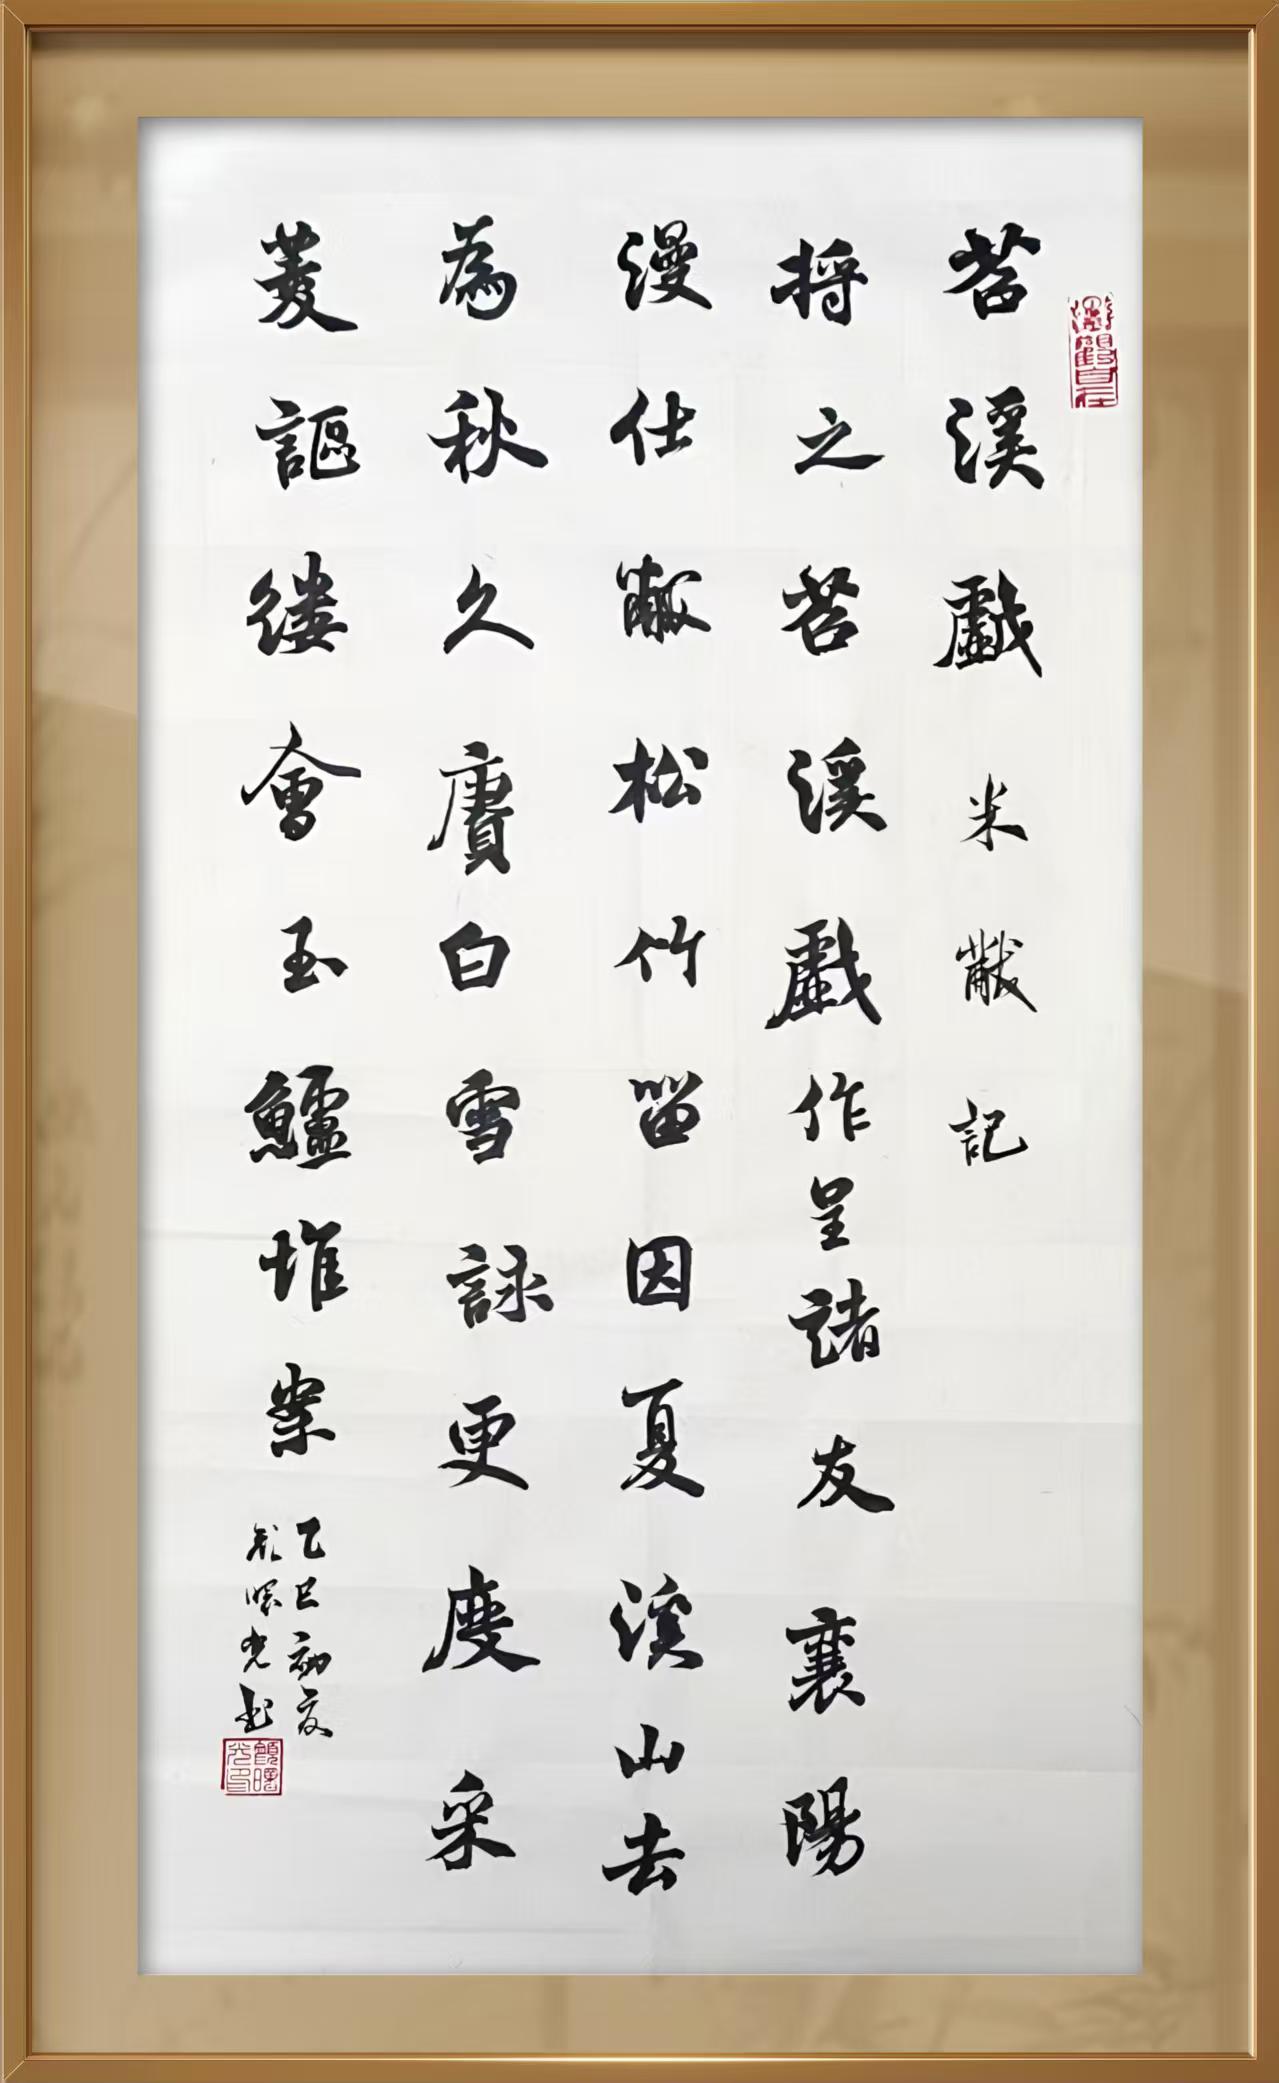 苕溪戲米黻記
將之苕溪戲作呈諸友襄陽
漫仕黻松竹留因夏溪山去
為秋久賡白雪詠更度采
菱謳縷會玉鱸堆案
乙巳初夏
顧曙光書